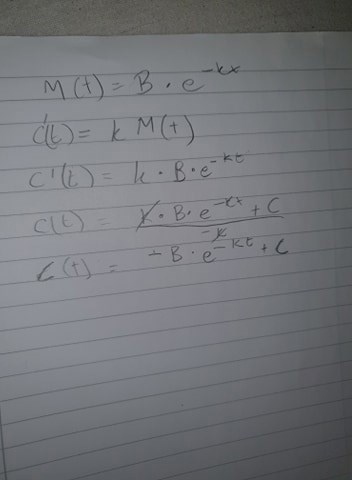 M(t) = B · e^-kx
c'(t) = k M(t)
c'(t) = k · B · e^-kt
c(t) = k · B · e^-kx + C / -k
c(t) = - B · e^-kt + C